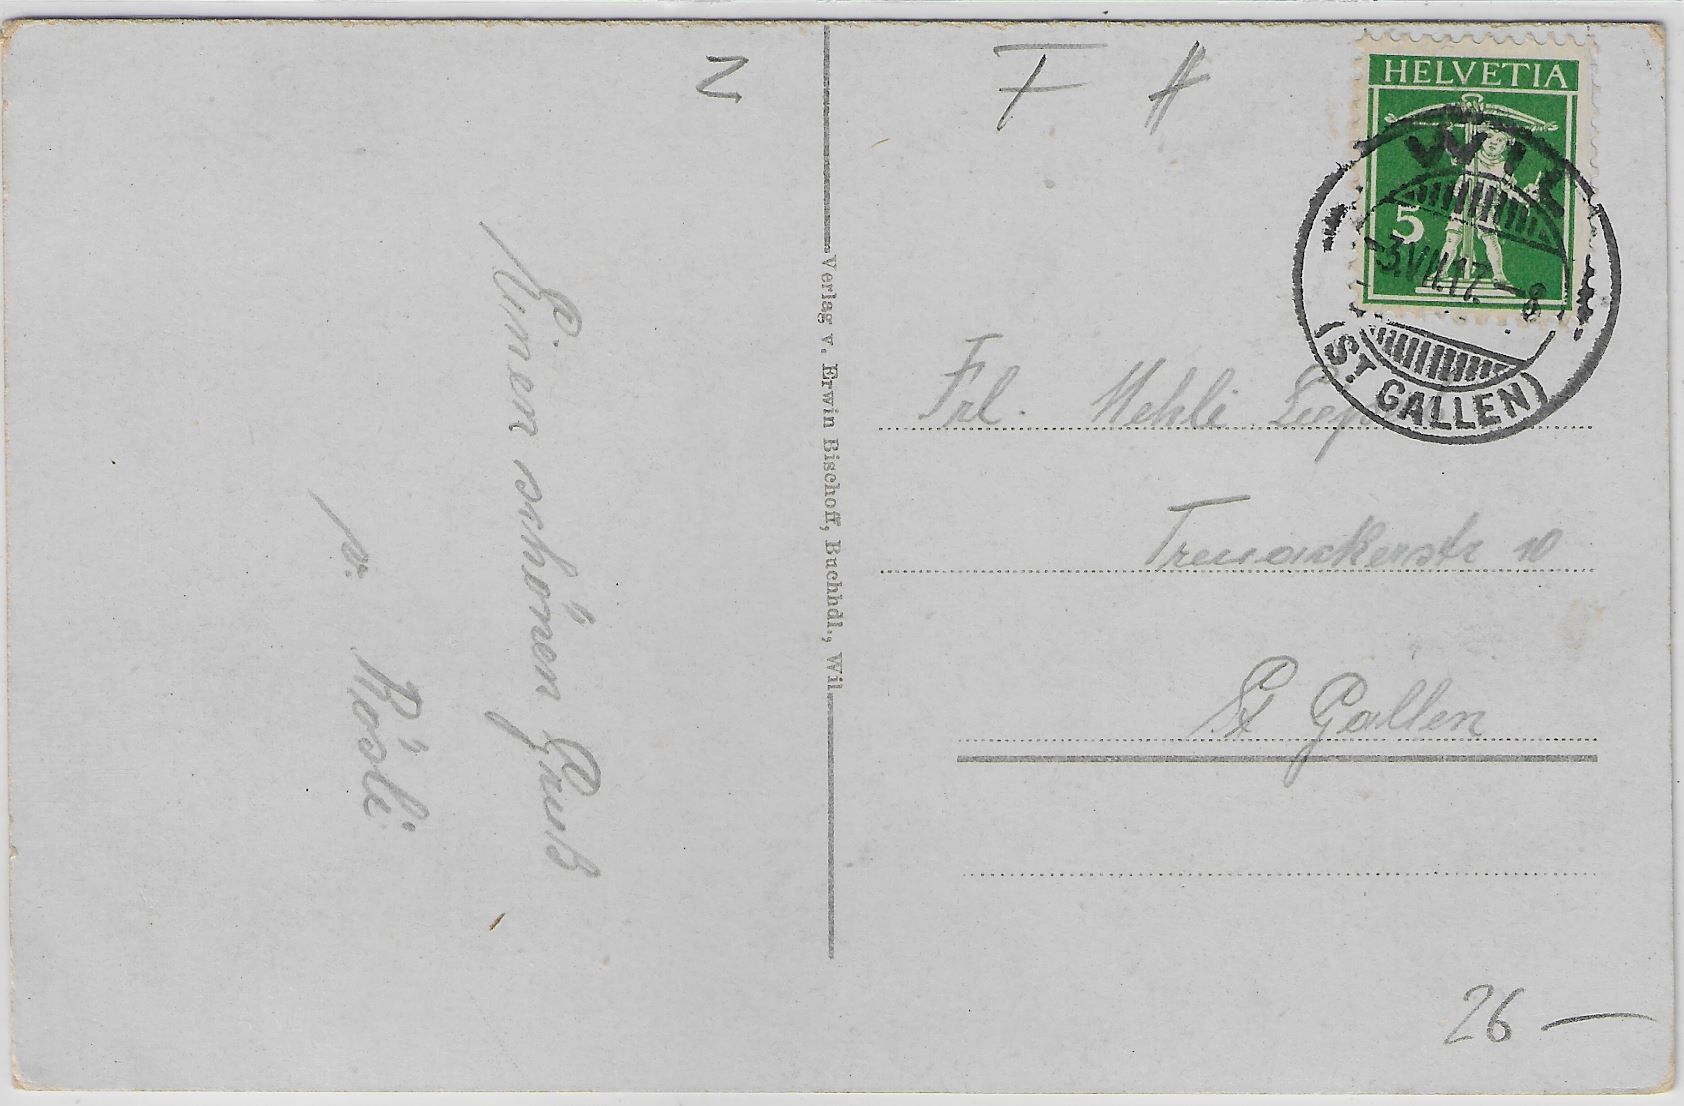 N
F #
HELVETIA
5
WIL
-3.VII.17.-8
(ST. GALLEN)
Einen schönen Gruß
v. Rösli
Verlag v. Erwin Bischoff, Buchhdl., Wil.
Frl. Mehli
Treuackerstr 10
St Gallen
26 —